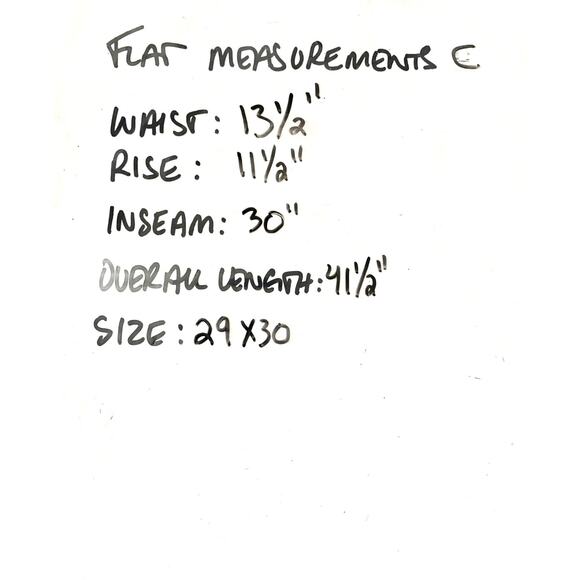 FLAT MEASUREMENTS E
WAIST: 13 1/2"
RISE: 11 1/2"
INSEAM: 30"
OVERALL LENGTH: 41 1/2"
SIZE: 29 X 30